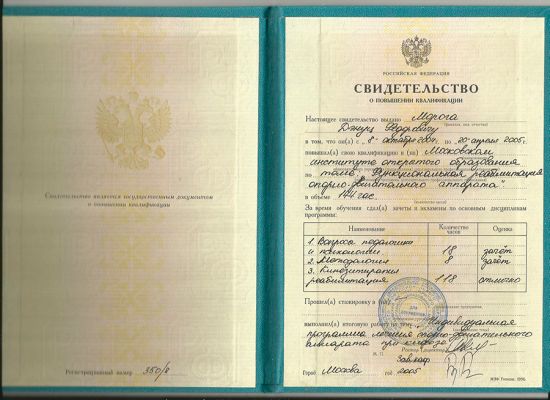 Свидетельство является государственным документом
о повышении квалификации
Регистрационный номер 350/8
РОССИЙСКАЯ ФЕДЕРАЦИЯ
СВИДЕТЕЛЬСТВО
О ПОВЫШЕНИИ КВАЛИФИКАЦИИ
Настоящее свидетельство выдано Мдрога
(фамилия, имя, отчество)
в том, что он(а) с „8“ октября 2004. по „20“ апреля 2005г.
повысил(а) свою квалификацию в (на) Московском
институте открытого образования
по теме „Функциональная реабилитация
опорно-двигательного аппарата“
в объеме 144 час.
(количество часов)
За время обучения сдал(а) зачеты и экзамены по основным дисциплинам
программы:
Наименование Количество часов Оценка
1. Вопросы педагогики
и психологии 18 зачёт
2. Методология 8 зачёт
3. Кинезитерапия
реабилитация 118 отлично
Прошел(а) стажировку в (на)
выполнил(а) итоговую работу на тему: „Индивидуальная
программа лечения опорно-двигательного
аппарата при
Ректор (директор)
М. П.
Зав. каф.
Город Москва год 2005